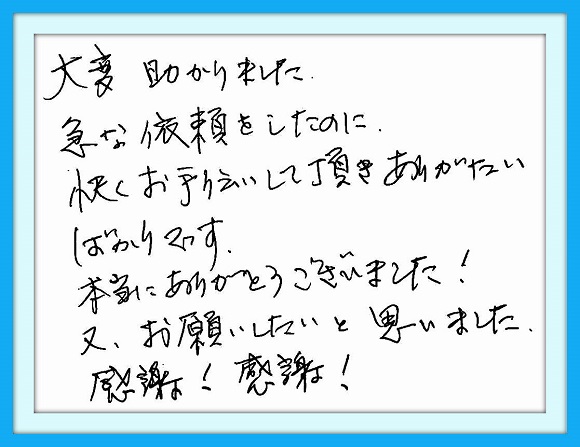 大変助かりました.
急な依頼をしたのに.
快くお手伝いして頂きありがたい
ばかりです.
本当にありがとうございました!
又、お願いしたいと思いました.
感謝! 感謝!